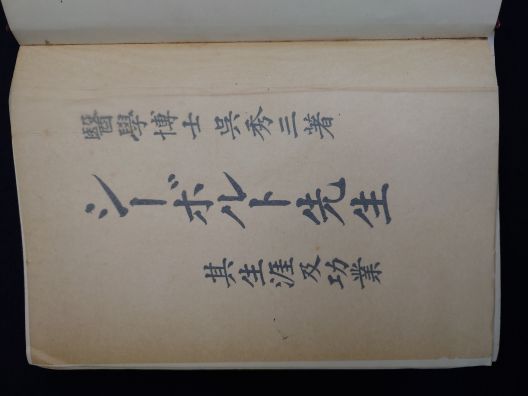 醫學博士 吳秀三著
シーボルト先生
其生涯及功業